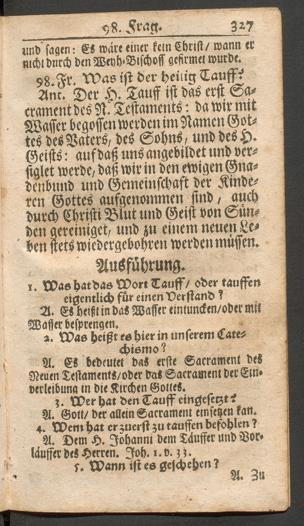 98. Frag. 327
und sagen: Es wäre einer kein Christ/ wann er
nicht durch den Weyh-Bischoff gefirmet wurde.
98. Fr. Was ist der heilig Tauff?
Ant. Der H. Tauff ist das erst Sa-
crament des N. Testaments: da wir mit
Wasser begossen werden im Namen Got-
tes des Vaters, des Sohns, und des H.
Geists: auf daß uns angebildet und ver-
siglet werde, daß wir in den ewigen Gna-
denbund und Gemeinschaft der Kinde-
ren Gottes aufgenommen sind, auch
durch Christi Blut und Geist von Sün-
den gereiniget, und zu einem neuen Le-
ben stets wiedergebohren werden müssen.
Ausführung.
1. Was hat das Wort Tauff/ oder tauffen
eigentlich für einen Verstand?
A. Es heißt in das Wasser eintuncken/oder mit
Wasser besprengen.
2. Was heißt es hier in unserem Cate-
chismo?
A. Es bedeutet das erste Sacrament des
Neuen Testaments/oder das Sacrament der Ein-
verleibung in die Kirchen Gottes.
3. Wer hat den Tauff eingesetzt?
A. Gott/ der allein Sacrament einsetzen kan.
4. Wem hat er zuerst zu tauffen befohlen?
A. Dem H. Johanni dem Täuffer und Vor-
läuffer des Herren. Joh. 1. v. 33.
5. Wann ist es geschehen?
A. Zu